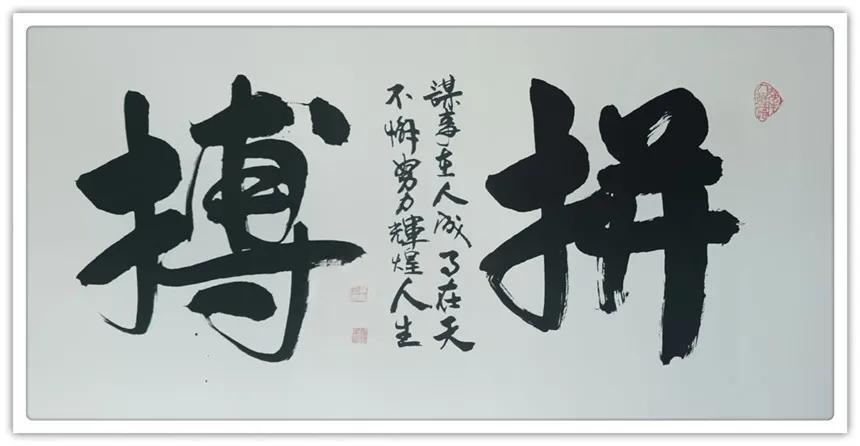 拼搏
謀事在人成事在天
不懈努力輝煌人生